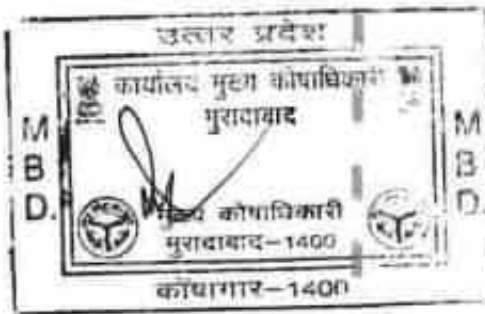 उत्तर प्रदेश
कार्यालय मुख्य कोषाधिकारी
मुरादाबाद
M B D.
M B D.
मुख्य कोषाधिकारी
मुरादाबाद-1400
कोषागार-1400